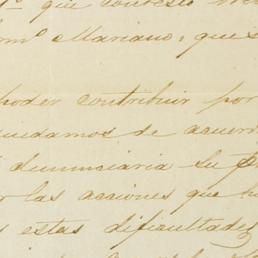 que contesto
Mariano, que s
poder contribuir por
quedamos de acuer
denunciaria su
las acciones que hu
estas dificultades